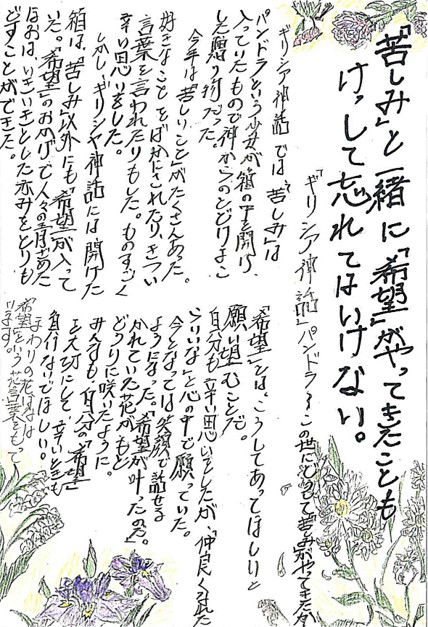 「苦しみ」と一緒に「希望」がやってきたことも
けっして忘れてはいけない。
『ギリシア神話』パンドラ〜この世にはじめて苦しみがやってきた
ギリシア神話では「苦しみ」は
パンドラという少女が箱の中を開け、
入っていたもので神からのとどけよこ
した贈り物だった。
今年は「苦しいこと」がたくさんあった。
好きなことをばかにされたり、きつい
言葉を言われたりもした。ものすごく
辛い思いをした。
しかし、ギリシア神話には開けた
箱は「苦しみ」以外にも「希望」が入って
いた。「希望」のおかげで人々の青ざめた
ほおは、いきいきとした赤みをとりも
どすことができた。
「希望」とは、こうしてあってほしいと
願い望むことだ。
自分も辛い思いをしたが、「仲良くなれた
らいいな」と心の中で願っていた。
今となっては笑顔で話せる
ようになった。「希望が叶ったのだ。」
かれていた花がもと
どおりに咲いたように。
みんなも自分の「希望」
を大切にして辛いときも
負けないでほしい。
まわりの花は
「希望」という花言葉をもって
います。